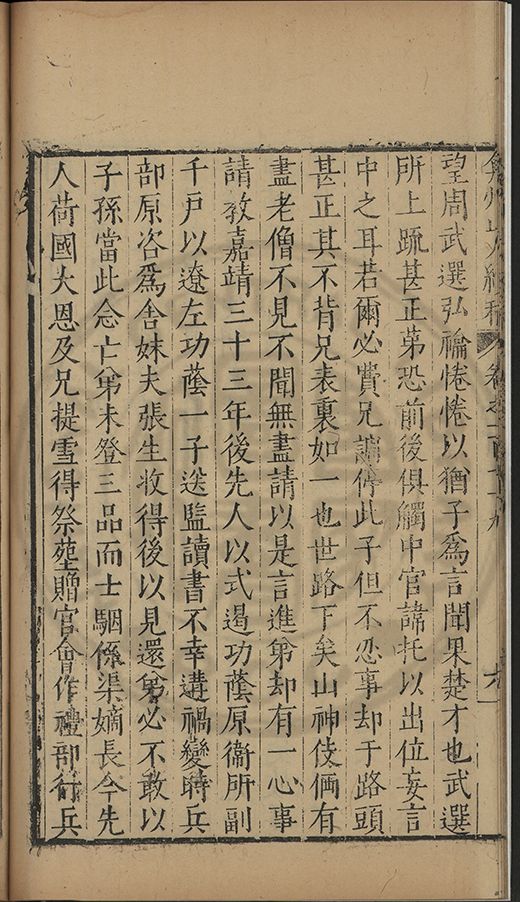 弇州山人續稿 卷之一百
望周武選弘禴惓惓以猶子爲言聞果楚才也武選
所上䟽甚正苐恐前後俱觸中官諱托以出位妄言
中之耳若爾必費兄調停此子但不忍事却于路頭
甚正其不背兄表裏如一也世路下矣山神伎倆有
盡老僧不見不聞無盡請以是言進苐却有一心事
請教嘉靖三十三年後先人以式遏功蔭原衞所副
千戸以遼左功蔭一子送監讀書不幸遘禍變時兵
部原咨爲舍妹夫張生收得後以見還苐必不敢以
子孫當此念亡弟未登三品而士駰係渠嫡長今先
人荷國大恩及兄提雪得祭塟贈官會作禮部行兵